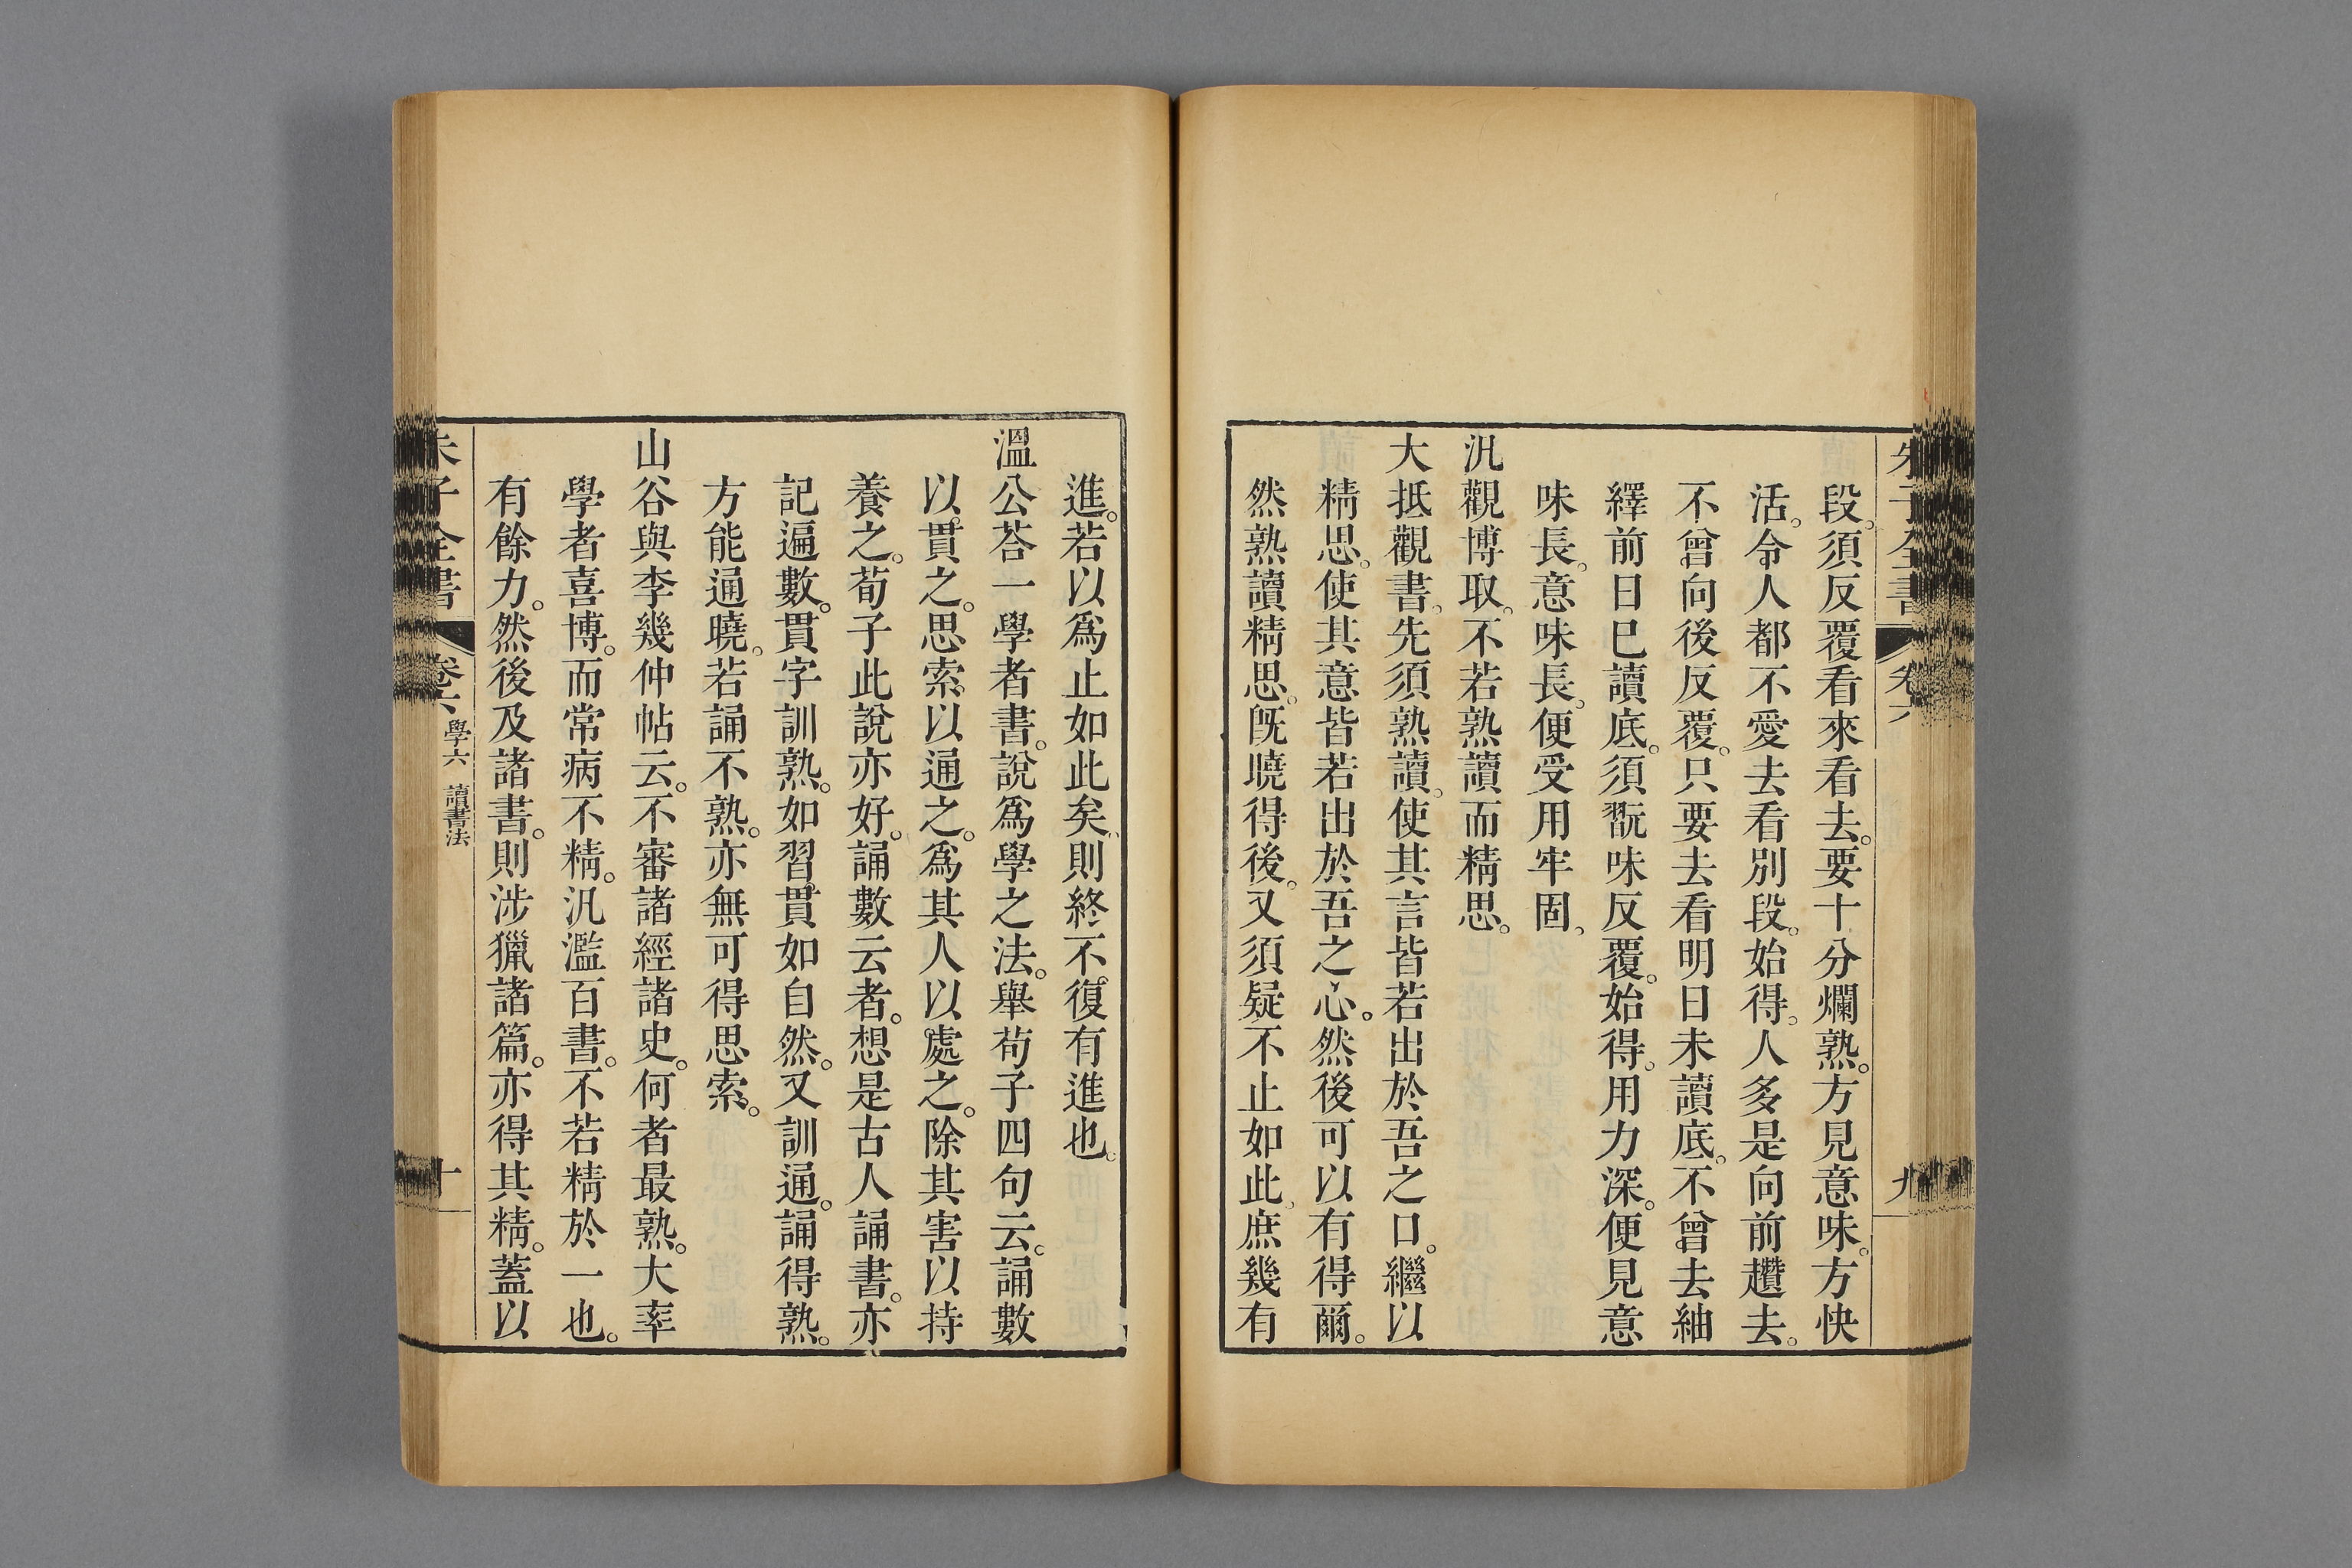 朱子全書 卷六 九
段。須反覆看來看去。要十分爛熟。方見意味。方快
活。令人都不愛去看別段。始得。人多是向前趲去。
不曾向後反覆。只要去看明日未讀底。不曾去紬
繹前日已讀底。須翫味反覆。始得。用力深。便見意
味長。意味長。便受用牢固。
汎觀博取。不若熟讀而精思。
大抵觀書。先須熟讀。使其言皆若出於吾之口。繼以
精思。使其意皆若出於吾之心。然後可以有得爾。
然熟讀精思。旣曉得後。又須疑不止如此。庶幾有
進。若以爲止如此矣。則終不復有進也。
溫公荅一學者書。說爲學之法。舉荀子四句云。誦數
以貫之。思索以通之。爲其人以處之。除其害以持
養之。荀子此說亦好。誦數云者。想是古人誦書。亦
記遍數。貫字訓熟。如習貫如自然。又訓通。誦得熟。
方能通曉。若誦不熟。亦無可得思索。
山谷與李幾仲帖云。不審諸經諸史。何者最熟。大率
學者喜博。而常病不精。汎濫百書。不若精於一也。
有餘力。然後及諸書。則涉獵諸篇。亦得其精。蓋以
朱子全書 卷六 學六 讀書法 十